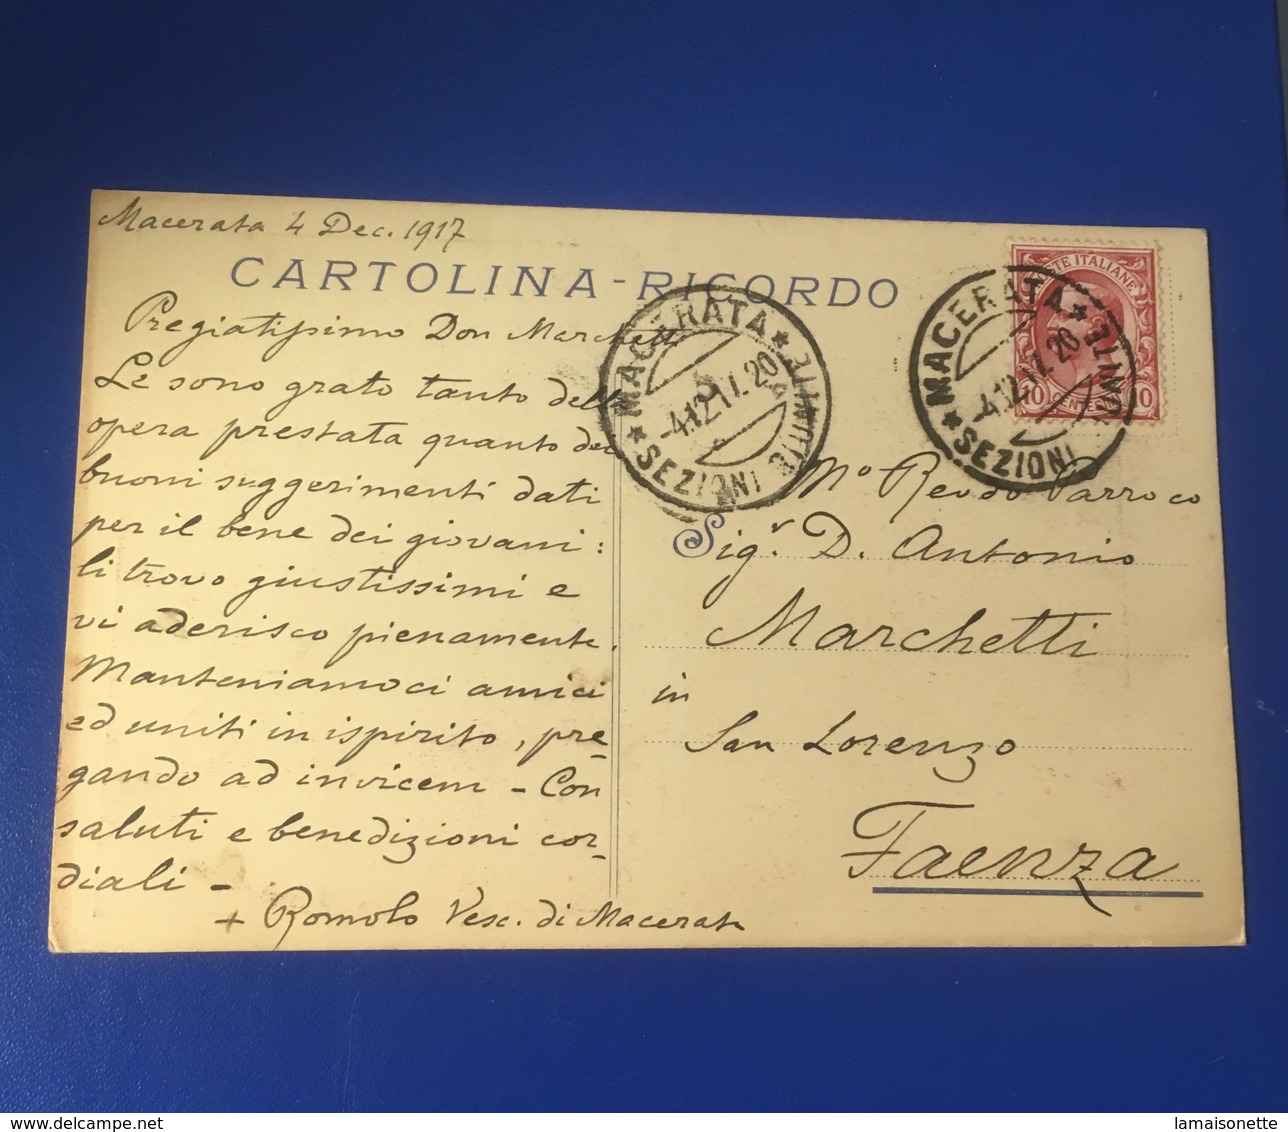 Macerata 4 Dec. 1917
CARTOLINA-RICORDO
Pregiatissimo Don Marchetti
Le sono grato tanto dell'
opera prestata quanto dei
buoni suggerimenti dati
per il bene dei giovani:
li trovo giustissimi e
vi aderisco pienamente.
Manteniamoci amici
ed uniti in ispirito, pre-
gando ad invicem - Con
saluti e benedizioni cor-
diali -
+ Romolo Vesc. di Macerata
MACERATA
* SEZIONI RIUNITE *
-4.12.17.20
POSTE ITALIANE
10 CENTESIMI 10
MACERATA
* SEZIONI RIUNITE *
-4.12.17.20
Mº Revdo Parroco
Sigr. D. Antonio
Marchetti
in
San Lorenzo
Faenza
lamaisonette